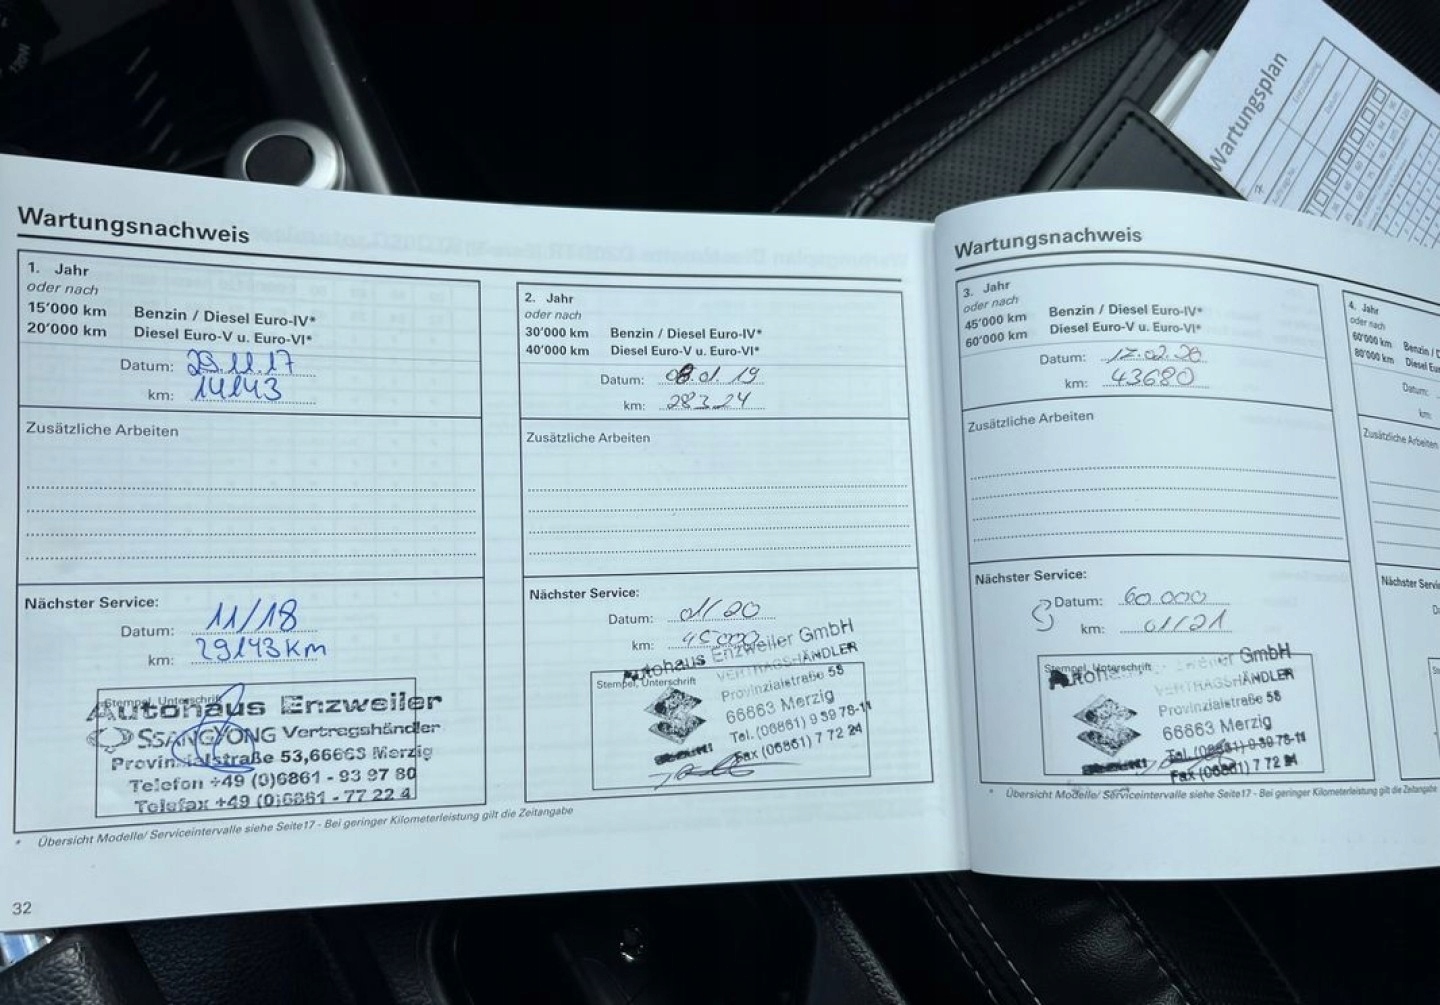 Wartungsnachweis
1. Jahr
oder nach
15'000 km Benzin / Diesel Euro-IV*
20'000 km Diesel Euro-V u. Euro-VI*
Datum: 29.11.17
km: 14143
Zusätzliche Arbeiten
Nächster Service:
Datum: 11/18
km: 29143 km
Stempel, Unterschrift
Autohaus Enzweiler
SSANGYONG Vertragshändler
Provinzialstraße 53, 66663 Merzig
Telefon +49 (0)6861 - 93 97 80
Telefax +49 (0)6861 - 77 22 4
2. Jahr
oder nach
30'000 km Benzin / Diesel Euro-IV*
40'000 km Diesel Euro-V u. Euro-VI*
Datum: 08.01.19
km: 28324
Zusätzliche Arbeiten
Nächster Service:
Datum: 01/20
km: 45000
Stempel, Unterschrift
Autohaus Enzweiler GmbH
VERTRAGSHÄNDLER
Provinzialstraße 58
66663 Merzig
Tel. (06861) 9 39 78-11
Fax (06861) 7 72 24
* Übersicht Modelle/ Serviceintervalle siehe Seite17 - Bei geringer Kilometerleistung gilt die Zeitangabe
32
Wartungsnachweis
3. Jahr
oder nach
45'000 km Benzin / Diesel Euro-IV*
60'000 km Diesel Euro-V u. Euro-VI*
Datum: 17.02.20
km: 43680
Zusätzliche Arbeiten
Nächster Service:
Datum: 60.000
km: 01/21
Stempel, Unterschrift
GmbH
VERTRAGSHÄNDLER
Provinzialstraße 58
66663 Merzig
Tel. (06861) 9 39 78-11
Fax (06861) 7 72
* Übersicht Modelle/ Serviceintervalle siehe Seite17 - Bei geringer Kilometerleistung gilt die Zeitangabe
4. Jahr
oder nach
60'000 km Benzin /
80'000 km Diesel
Datum:
km:
Zusätzliche Arbeiten
Nächster
Wartungsplan